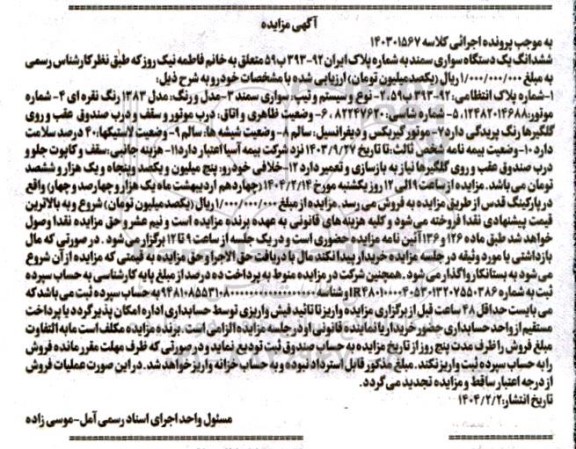 آگهی مزایده
به موجب پرونده اجرائی کلاسه ۱۴۰۳۰۱۵۶۷
ششدانگ یک دستگاه سواری سمند به شماره پلاک ایران ۹۲-۳۹۳ب۵۹ متعلق به خانم فاطمه نیک روز که طبق نظر کارشناس رسمی
به مبلغ ۱/۰۰۰/۰۰۰/۰۰۰ ریال (یکصد میلیون تومان) ارزیابی شده با مشخصات خودرو به شرح ذیل:
۱-شماره پلاک انتظامی: ۹۲-۳۹۳ب۲،۵۹- نوع و سیستم و تیپ: سواری سمند ۳-مدل و رنگ: مدل ۱۳۸۳ رنگ نقره ای ۴- شماره
موتور: ۱۲۴۸۲۰۱۴۶۸۸، ۵- شماره شاسی: ۸۲۲۴۷۶۲۰، ۶- وضعیت ظاهری و اتاق: درب موتور و سقف و درب صندوق عقب و روی
گلگیرها رنگ پریدگی دارد ۷- موتور گیربکس و دیفرانسیل: سالم ۸- وضعیت شیشه ها: سالم ۹- وضعیت لاستیکها: ۴۰ درصد سلامت
دارد ۱۰- وضعیت بیمه نامه شخص ثالث: تا تاریخ ۱۴۰۳/۹/۲۷ نزد شرکت بیمه آسیا اعتبار دارد ۱۱- هزینه جانبی: سقف و کاپوت جلو و
درب صندوق عقب و روی گلگیرها نیاز به بازسازی و تعمیر دارد ۱۲- خلافی خودرو: پنج میلیون و یکصد و پنجاه و یک هزار و ششصد
تومان می باشد. مزایده از ساعت ۹ الی ۱۲ روز یکشنبه مورخ ۱۴۰۴/۲/۱۴ (چهاردهم اردیبهشت ماه یک هزار و چهارصد و چهار) واقع
در پارکینگ قدس از طریق مزایده به فروش می رسد. مزایده از مبلغ ۱/۰۰۰/۰۰۰/۰۰۰ ریال (یکصد میلیون تومان) شروع و به بالاترین
قیمت پیشنهادی نقدا فروخته می شود و کلیه هزینه های قانونی به عهده برنده مزایده است و نیم عشر و حق مزایده نقدا وصول
خواهد شد طبق ماده ۱۲۶ و ۱۳۶ آئین نامه مزایده حضوری است و در یک جلسه از ساعت ۹ تا ۱۲ برگزار می شود. در صورتی که مال
بازداشتی یا مورد وثیقه در جلسه مزایده خریدار پیدا نکند مال با دریافت حق الاجرا و حق مزایده به قیمتی که مزایده از آن شروع
می شود به بستانکار واگذار می شود. همچنین شرکت در مزایده منوط به پرداخت ده درصد از مبلغ پایه کارشناسی به حساب سپرده
ثبت به شماره IR۴۸۰۱۰۰۰۰۴۰۵۳۰۱۳۲۰۷۵۵۰۳۸۶ و شناسه به حساب سپرده ثبت می باشد که
می بایست حداقل ۴۸ ساعت قبل از برگزاری مزایده واریز تا تائید فیش واریزی توسط حسابداری اداره امکان پذیر گردد یا پرداخت
مستقیم از واحد حسابداری حضور خریدار یا نماینده قانونی او در جلسه مزایده الزامی است. برنده مزایده مکلف است مابه التفاوت
مبلغ فروش را ظرف مدت پنج روز از تاریخ مزایده به حساب صندوق ثبت تودیع نماید و در صورتی که ظرف مهلت مقرر مانده فروش
را به حساب سپرده ثبت واریز نکند. مبلغ مذکور قابل استرداد نبوده و به حساب خزانه واریز خواهد شد. در این صورت عملیات فروش
از درجه اعتبار ساقط و مزایده تجدید می گردد.
تاریخ انتشار: ۱۴۰۴/۲/۲
مسئول واحد اجرای اسناد رسمی آمل-موسی زاده